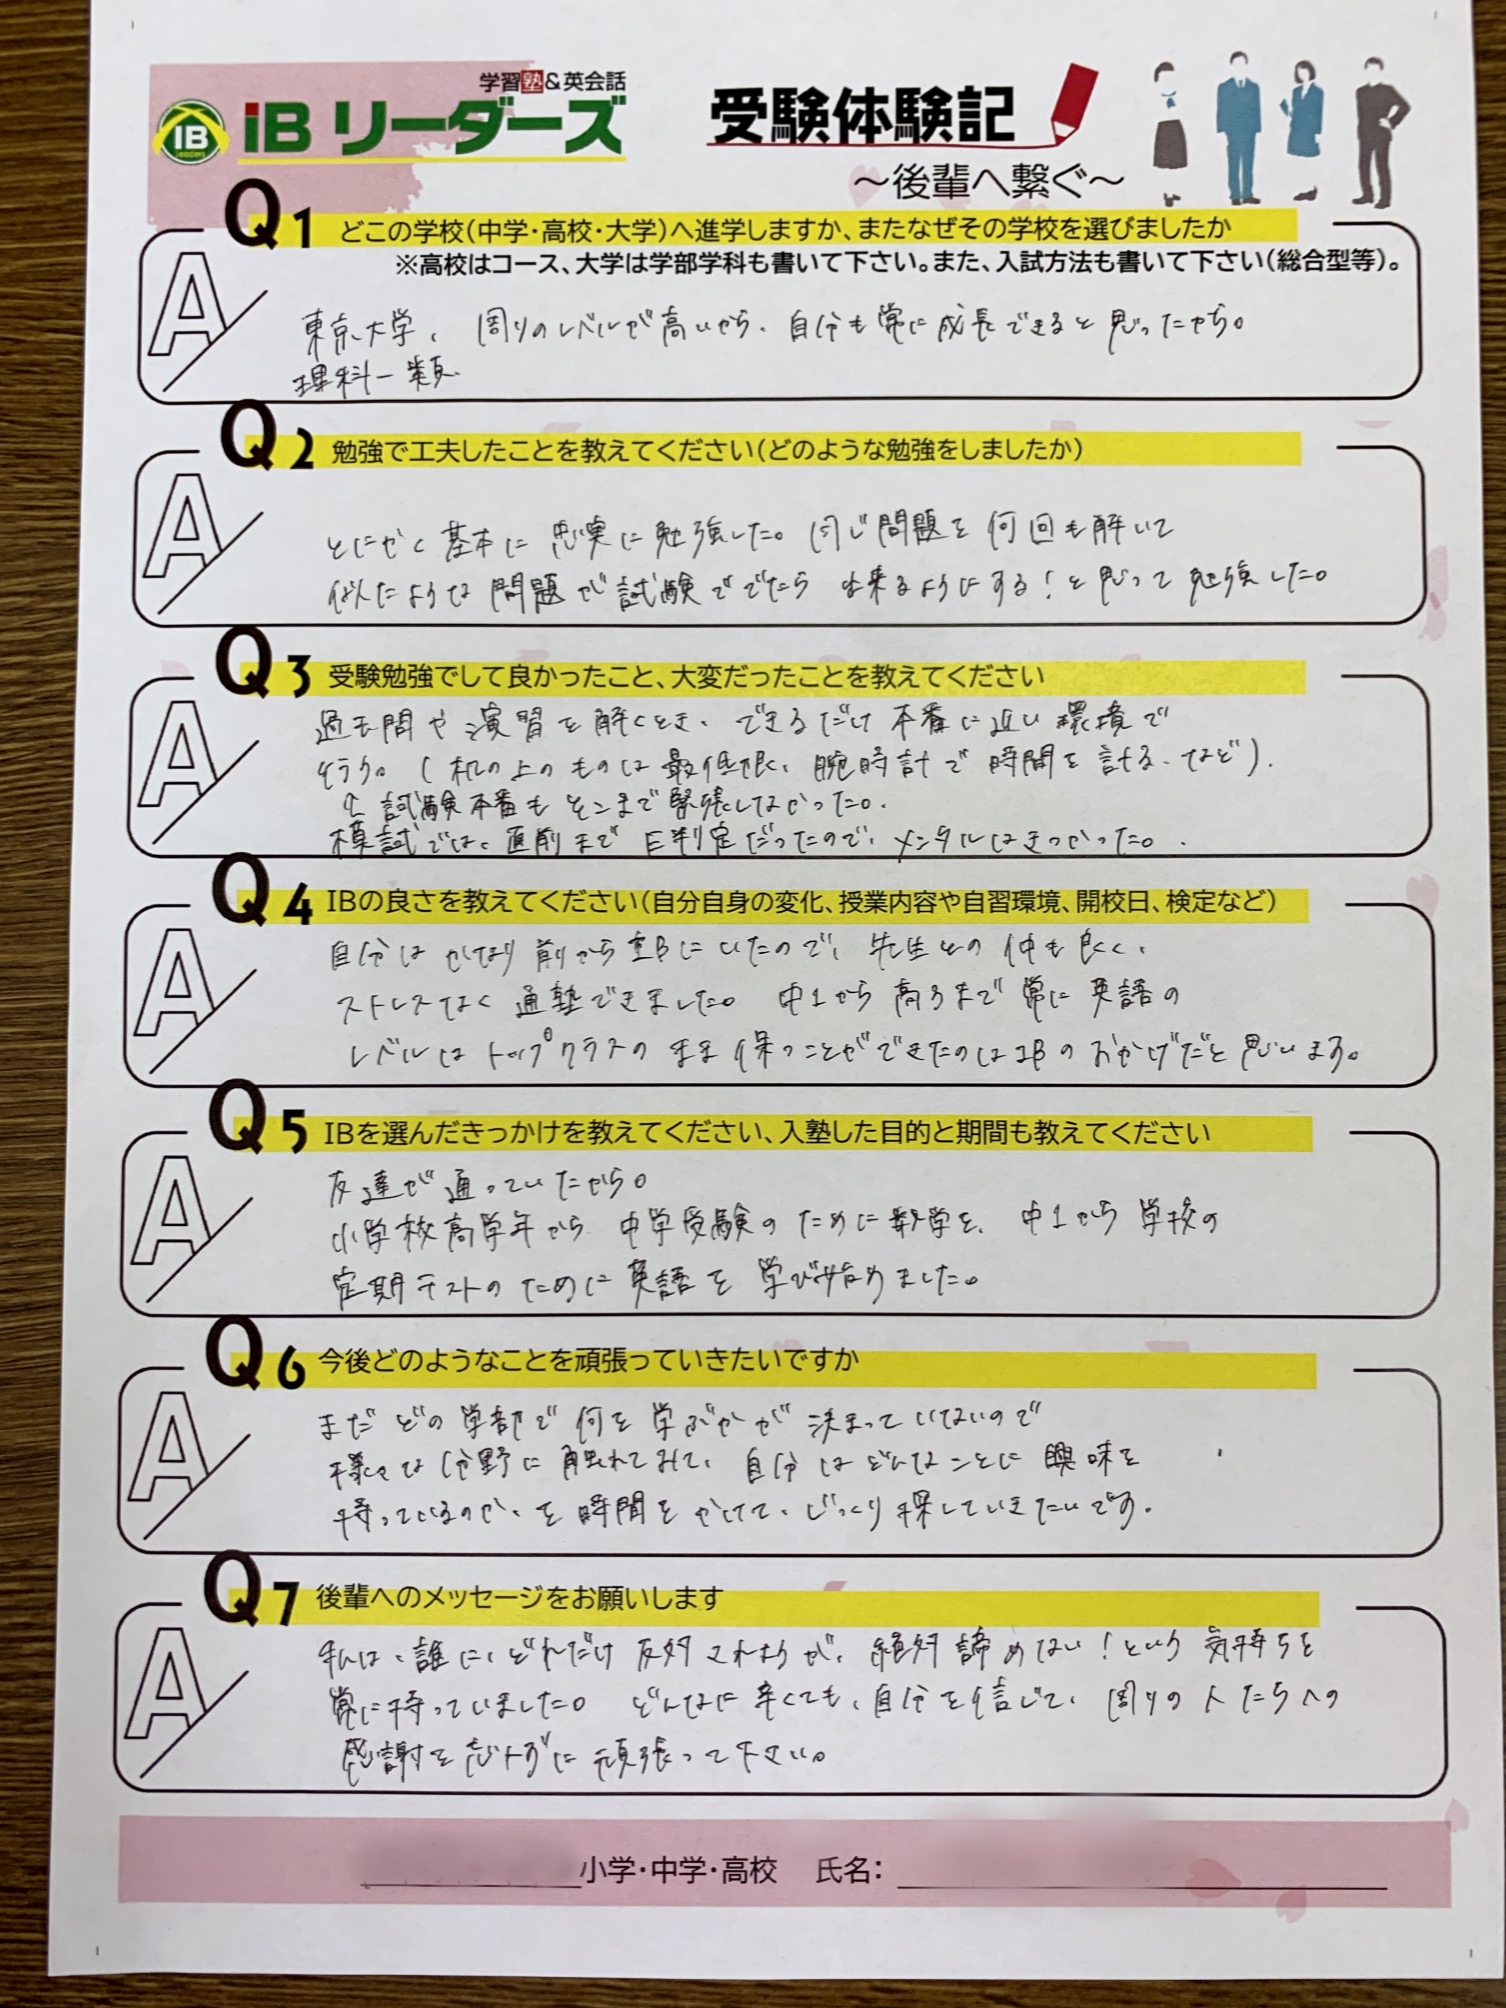 学習塾&英会話
iB リーダーズ
IB
Leaders
受験体験記
～後輩へ繋ぐ～
Q1 どこの学校(中学・高校・大学)へ進学しますか、またなぜその学校を選びましたか
※高校はコース、大学は学部学科も書いて下さい。また、入試方法も書いて下さい(総合型等)。
A
東京大学、周りのレベルが高いから、自分も常に成長できると思ったから。
理科一類
Q2 勉強で工夫したことを教えてください(どのような勉強をしましたか)
A
とにかく基本に忠実に勉強した。同じ問題を何回も解いて
似たような問題が試験ででたら出来るようにする!と思って勉強した。
Q3 受験勉強でして良かったこと、大変だったことを教えてください
A
過去問や演習を解くとき、できるだけ本番に近い環境で
行う。(机の上のものは最低限、腕時計で時間を計る、など).
↑試験本番もそこまで緊張しなかった。
模試では、直前までE判定だったので、メンタルはきつかった。
Q4 IBの良さを教えてください(自分自身の変化、授業内容や自習環境、開校日、検定など)
A
自分はかなり前からIBにいたので、先生との仲も良く、
ストレスなく通塾できました。中1から高3まで常に英語の
レベルはトップクラスのまま保つことができたのはIBのおかげだと思います。
Q5 IBを選んだきっかけを教えてください、入塾した目的と期間も教えてください
A
友達が通っていたから。
小学校高学年から中学受験のために数学を、中1から学校の
定期テストのために英語を学び始めました。
Q6 今後どのようなことを頑張っていきたいですか
A
まだどの学部で何を学ぶかが決まっていないので
様々な分野に触れてみて、自分はどんなことに興味を
持っているのか、を時間をかけて、じっくり探していきたいです。
Q7 後輩へのメッセージをお願いします
A
私は、誰に、どれだけ反対されようが、絶対諦めない!という気持ちを
常に持っていました。どんなに辛くても、自分を信じて、周りの人たちへの
感謝を忘れずに頑張って下さい。
小学・中学・高校 氏名: